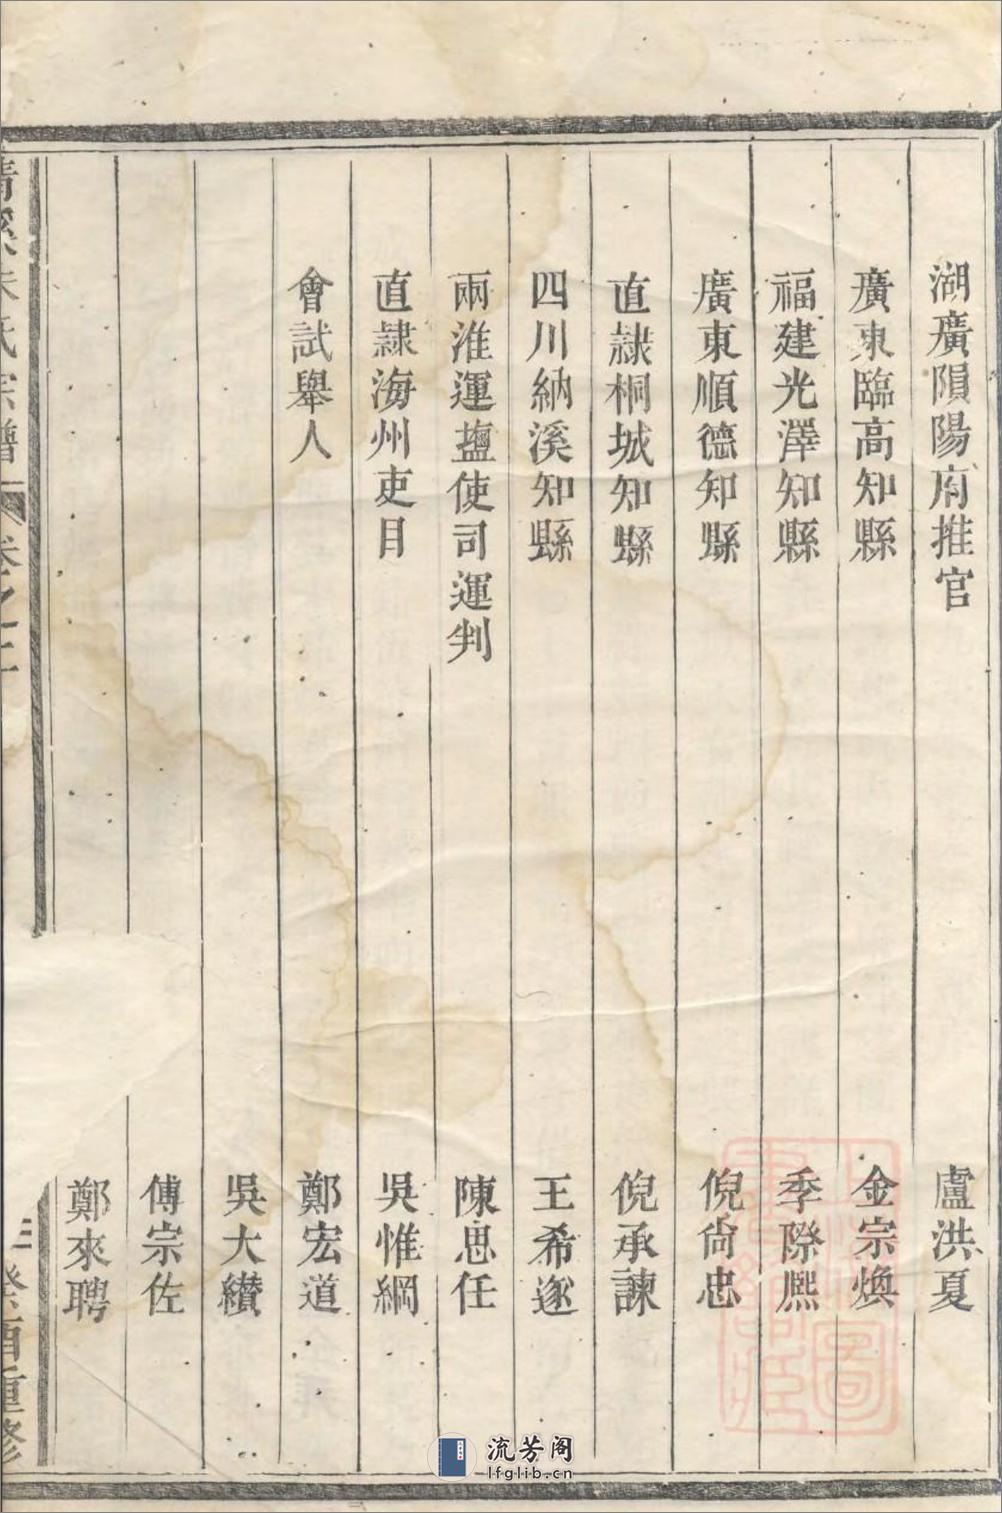 湖廣隕陽府推官 盧洪夏
廣東臨高知縣 金宗煥
福建光澤知縣 季際熈
廣東順德知縣 倪尙忠
直隷桐城知縣 倪承諫
四川納溪知縣 王希逐
兩淮運鹽使司運判 陳思任
直隷海州吏目 吳惟綱
會試舉人 鄭宏道
吳大纘
傅宗佐
鄭來聘
氏宗譜 卷之二 三 癸酉重修
流芳阁
lfglib.cn